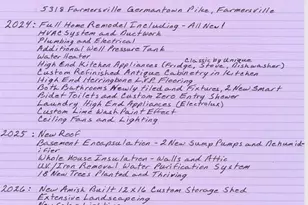 5318 Farmersville Germantown Pike, Farmersville
2024: Full Home Remodel Including - All New!
HVAC System and Ductwork
Plumbing and Electrical
Additional Well Pressure Tank
Water Heater
Classic by Unique
High End Kitchen Appliances (Fridge, Stove, Dishwasher)
Custom Refinished Antique Cabinetry in Kitchen
High End Herringbone LVP Flooring
Both Bathrooms Newly Tiled and Fixtures, 2 New Smart
Bidet Toilets and Custom Zero Entry Shower
Laundry High End Appliances (Electrolux)
Custom Lime Wash Paint Effect
Ceiling Fans and Lighting
2025: New Roof
Basement Encapsulation - 2 New Sump Pumps and Dehumid-
ifier
Whole House Insulation - Walls and Attic
UV/Iron Removal Water Purification System
18 New Trees Planted and Thriving
2026: New Amish Built 12x16 Custom Storage Shed
Extensive Landscapeing